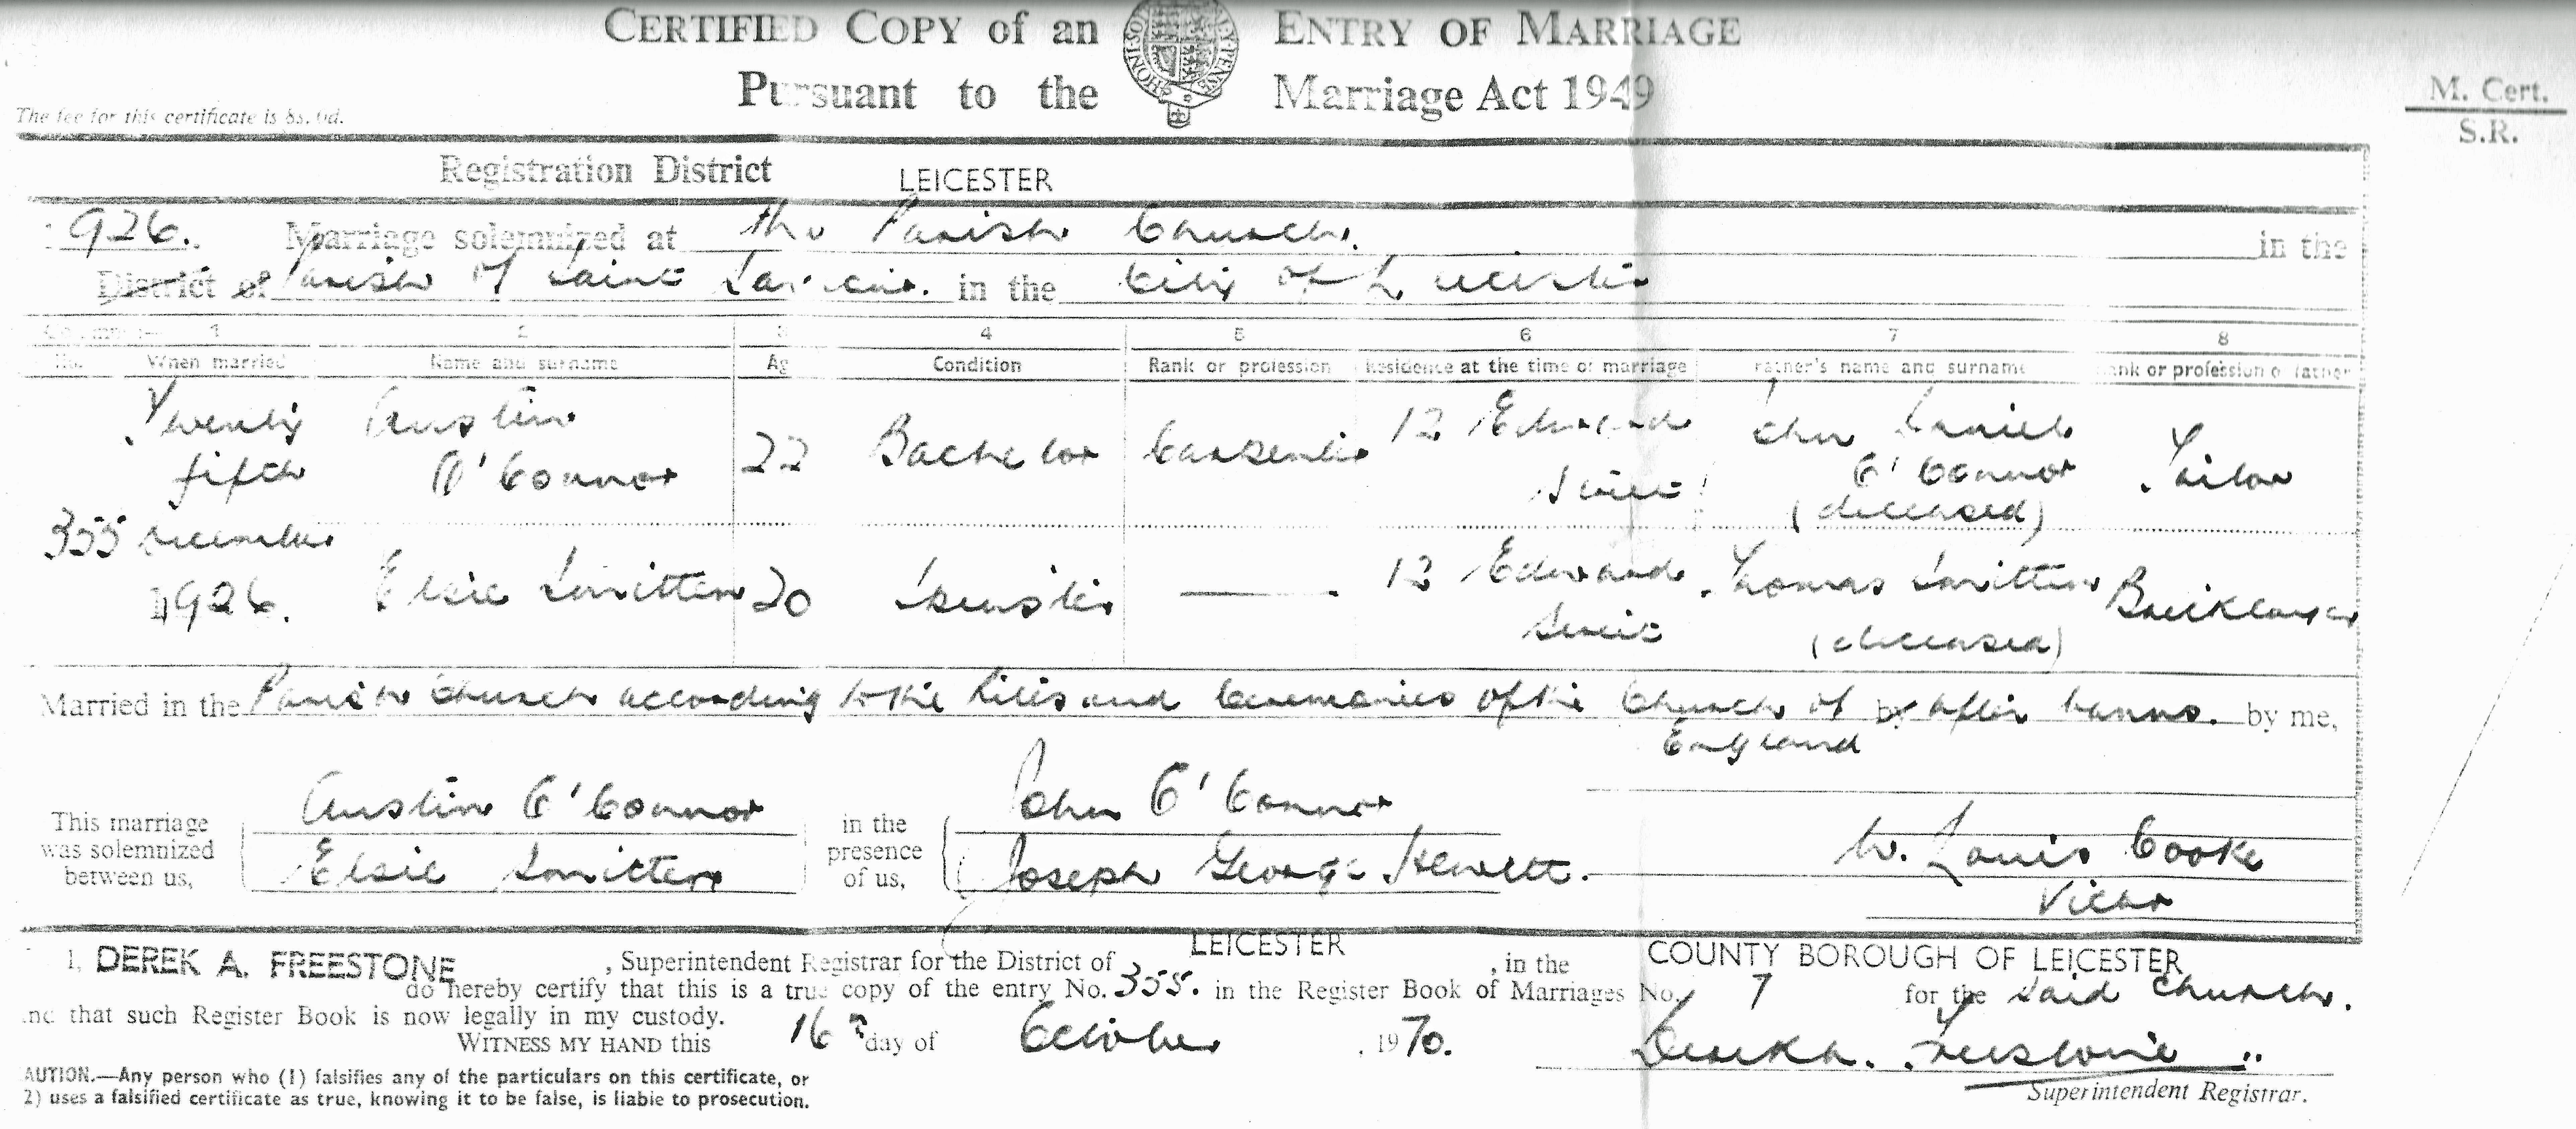 CERTIFIED COPY of an ENTRY OF MARRIAGE
Pursuant to the Marriage Act 1949
HONI·SOI
M. Cert.
S.R.
The fee for this certificate is 8s. 0d.
Registration District LEICESTER
1926. Marriage solemnized at the Parish Church. in the
District of Parish of Saint in the City of Leicester
1 2 3 4 5 6 7 8
No. When married Name and surname Ag Condition Rank or profession Residence at the time of marriage Father's name and surname Rank or profession of father
Twenty Austin 22 Bachelor Carpenter 12 Edward John Daniel Tailor
fifth O'Connor Street O'Connor
(deceased)
355 December
1926. Elsie Smitten 20 Spinster — 12 Edward Thomas Smitten Bricklayer
Street (deceased)
Married in the Parish Church according to the Rites and Ceremonies of the Church of by after banns. by me,
England
This marriage was solemnized between us,
Austin O'Connor
Elsie Smitten
in the presence of us,
John O'Connor
Joseph George Hewett.
W. Louis Cooke
Vicar
I, DEREK A. FREESTONE, Superintendent Registrar for the District of LEICESTER, in the COUNTY BOROUGH OF LEICESTER
do hereby certify that this is a true copy of the entry No. 355. in the Register Book of Marriages No. 7 for the said Church.
and that such Register Book is now legally in my custody.
WITNESS MY HAND this 16th day of October, 1970.
Derek A. Freestone
Superintendent Registrar.
CAUTION.—Any person who (1) falsifies any of the particulars on this certificate, or
2) uses a falsified certificate as true, knowing it to be false, is liable to prosecution.